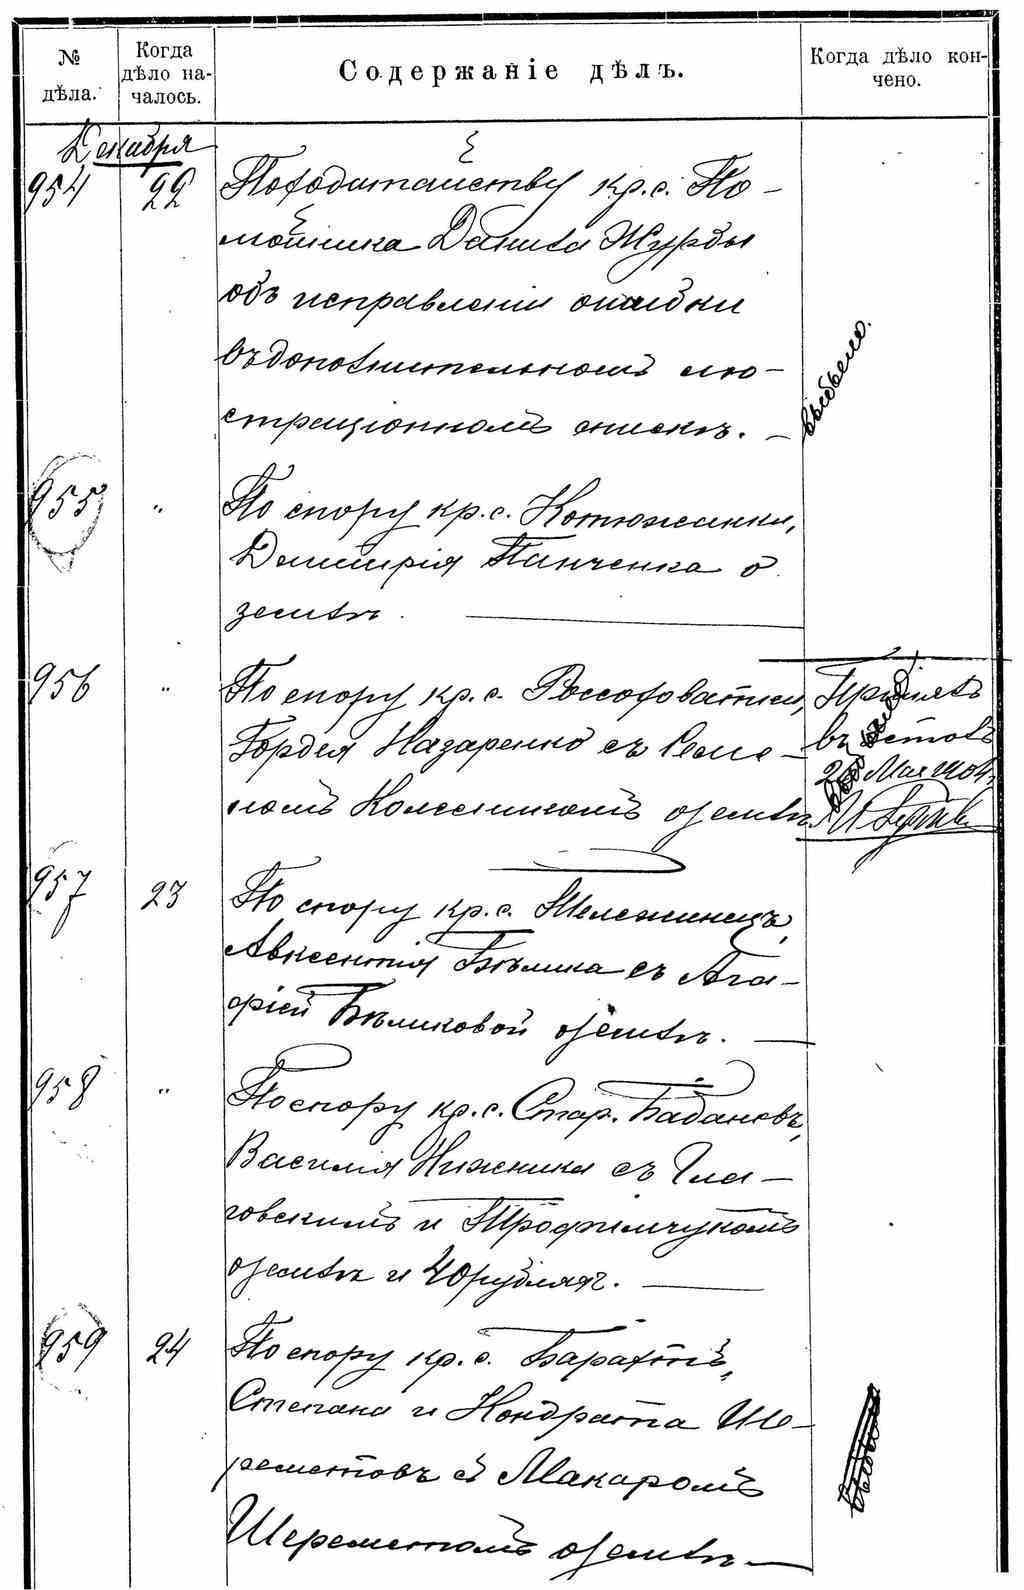 № дѣла.
Когда дѣло на-
чалось.
Содержаніе дѣлъ.
Когда дѣло кон-
чено.
Декабря
954 22 По ходатайству кр. с. По-
мойника Данила Журбы
объ исправленіи ошибки
въ дополнительномъ лю-
страціонномъ спискѣ. —
выбыло.
955 " По спору кр. с. Котюжанки,
Димитрія Панченка о
землѣ.
956 " По спору кр. с. Россоховатки,
Гордея Назаренко съ Семе-
номъ Колесникомъ о землѣ
Принялъ
въ
Мая
957 23 По спору кр. с. Тележинецъ,
Авксентія Бѣлика съ Ага-
фіей Бѣликовой о землѣ. —
958 " По спору кр. с. Стар. Бабановъ,
Василія Нижника съ Гла-
говскимъ и Трофимчукомъ
о землѣ и 40 рублях. —
959 24 По спору кр. с. Барахтъ,
Степана и Кондрата Ше-
реметовъ съ Макаромъ
Шереметомъ о землѣ —